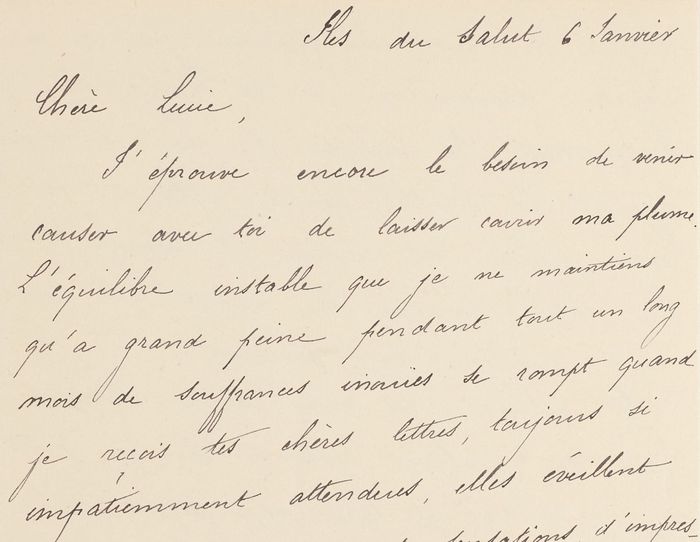 Iles du Salut 6 Janvier
Chère Lucie,
J'éprouve encore le besoin de venir
causer avec toi de laisser courir ma plume.
L'équilibre instable que je ne maintiens
qu'a grand peine pendant tout un long
mois de souffrances inouïes se rompt quand
je reçois tes chères lettres, toujours si
impatiemment attendues, elles éveillent
d'impres-